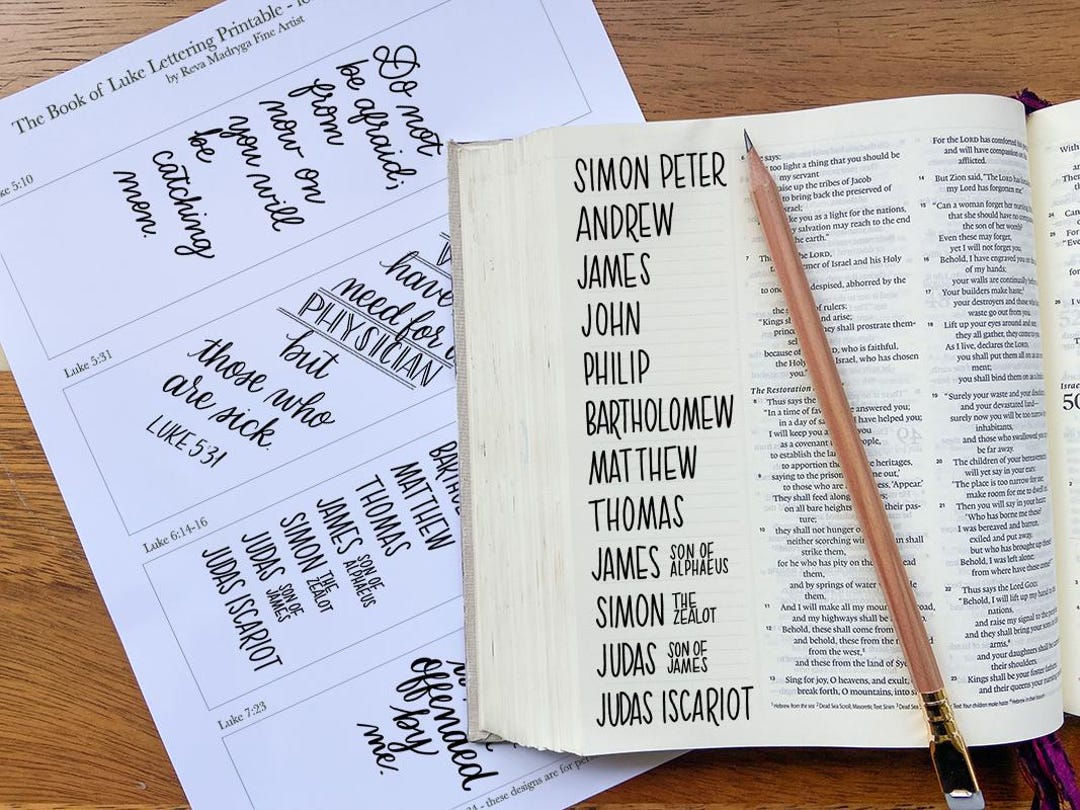 The Book of Luke Lettering Printable
by Reva Madryga Fine Artist
5:10
Do not
be afraid;
from
now on
you will
be
catching
men.
Luke 5:31
have
need for
PHYSICIAN
but
those who
are sick.
LUKE 5:31
Luke 6:14-16
MATTHEW
THOMAS
JAMES SON OF ALPHAEUS
SIMON THE ZEALOT
JUDAS SON OF JAMES
JUDAS ISCARIOT
Luke 7:23
offended
by
me.
these designs are for
SIMON PETER
ANDREW
JAMES
JOHN
PHILIP
BARTHOLOMEW
MATTHEW
THOMAS
JAMES SON OF ALPHAEUS
SIMON THE ZEALOT
JUDAS SON OF JAMES
JUDAS ISCARIOT
says:
too light a thing that you should be
my servant
raise up the tribes of Jacob
to bring back the preserved of
you as a light for the nations,
salvation may reach to the end
the earth."
7 the LORD,
of Israel and his Holy
despised, abhorred by the
of rulers:
"Kings and arise;
they shall prostrate them-
because of who is faithful,
the Holy of Israel, who has chosen
you."
The Restoration
8 Thus says the
"In a time of answered you;
in a day of I have helped you;
I will keep you
as a covenant people,
to establish the
to apportion the heritages,
9 saying to the out,'
to those who are 'Appear.'
They shall feed along
on all bare heights their pas-
ture;
10 they shall not hunger
neither scorching shall
strike them,
for he who has pity on
them,
and by springs of water
them.
11 And I will make all my road,
and my highways shall be
12 Behold, these shall come from
and behold, these from the
from the west,
and these from the land of
13 Sing for joy, O heavens, and exult,
break forth, O mountains, into
For the LORD has comforted
and will have compassion
afflicted.
14 But Zion said, "The LORD has
my Lord has forgotten me."
15 "Can a woman forget her
that she should have no
the son of her womb?
Even these may forget,
yet I will not forget you.
16 Behold, I have engraved you
of my hands;
your walls are continually
17 Your builders make haste;
your destroyers and those who
waste go out from you.
18 Lift up your eyes around and
they all gather, they come
As I live, declares the LORD,
you shall put them all on as
ment;
you shall bind them on as
19 "Surely your waste and your
and your devastated land—
surely now you will be too
inhabitants,
and those who swallowed you
be far away.
20 The children of your bereavement
will yet say in your ears:
'The place is too narrow for me;
make room for me to dwell
21 Then you will say in your heart:
'Who has borne me these?
I was bereaved and barren,
exiled and put away,
but who has brought up these?
Behold, I was left alone;
from where have these
22 Thus says the Lord GOD:
"Behold, I will lift up my hand
nations,
and raise my signal to the
and they shall bring your sons
arms,
and your daughters shall be
their shoulders.
23 Kings shall be your foster
and their queens your nursing